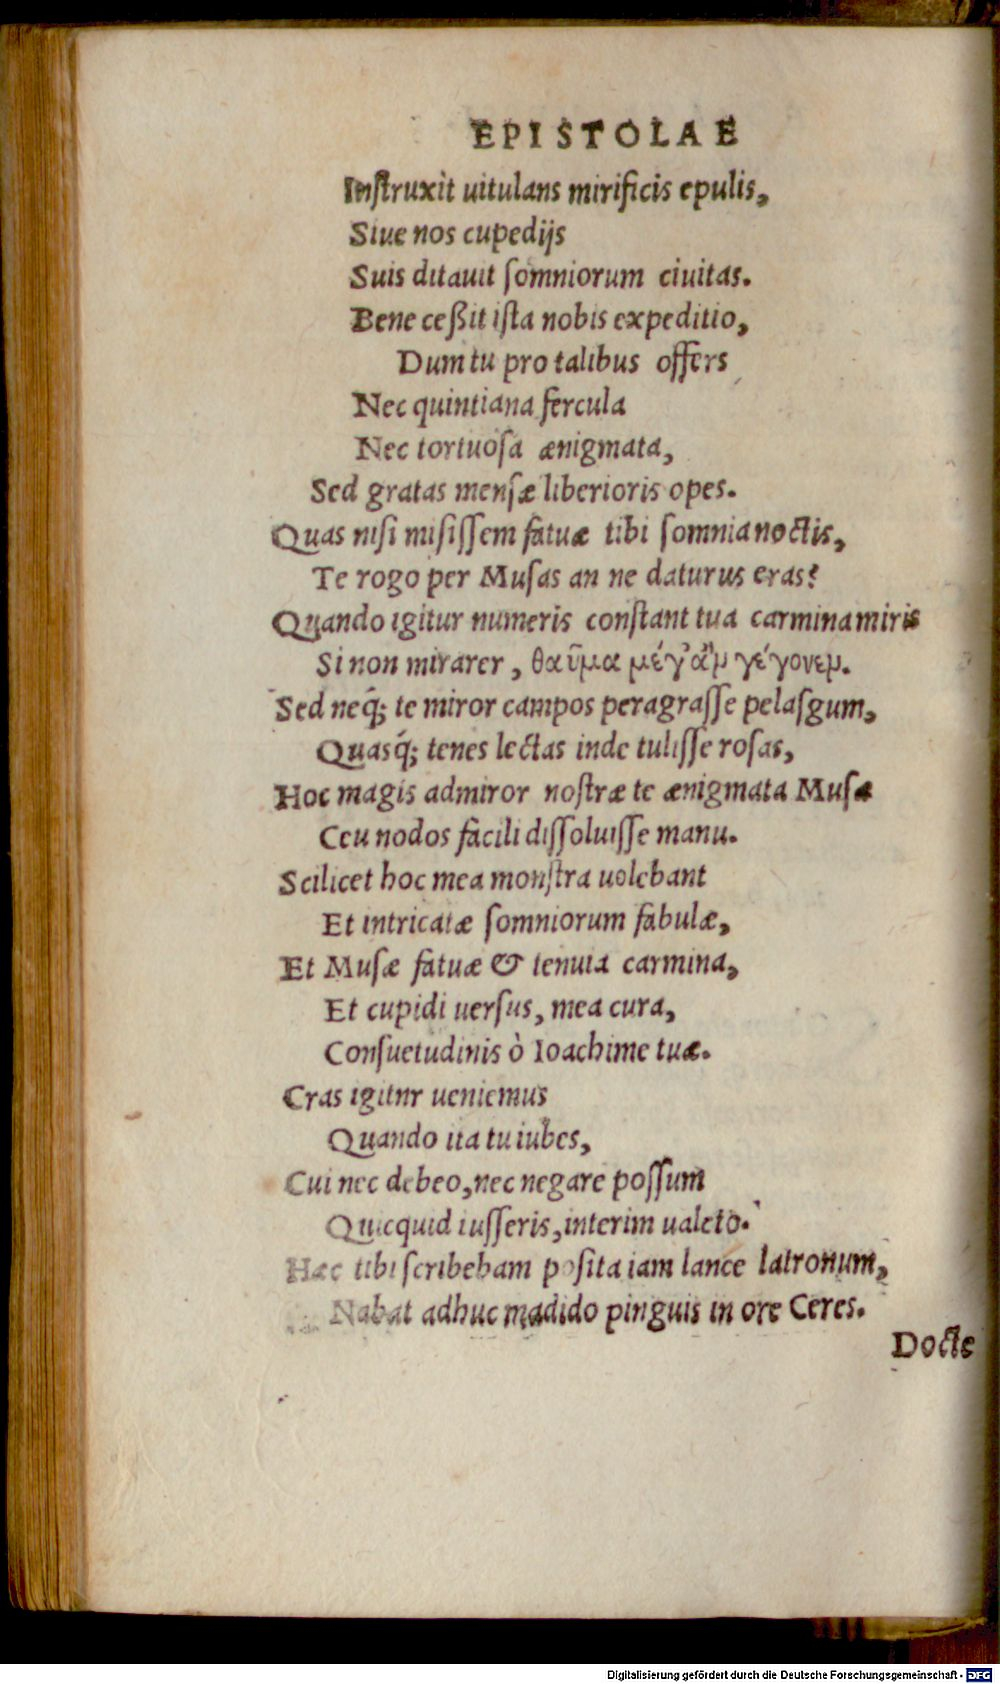 EPISTOLAE
Instruxit uitulans mirificis epulis,
Siue nos cupedijs
Suis ditauit somniorum ciuitas.
Bene ceßit ista nobis expeditio,
Dum tu pro talibus offers
Nec quintiana fercula
Nec tortuosa ænigmata,
Sed gratas mensæ liberioris opes.
Quas nisi misissem fatuæ tibi somnia noctis,
Te rogo per Musas an ne daturus eras?
Quando igitur numeris constant tua carmina miris
Si non mirarer, θαῦμα μέγ' ἂμ γέγονεμ.
Sed neq́; te miror campos peragrasse pelasgum,
Quasq́; tenes lectas inde tulisse rosas,
Hoc magis admiror nostræ te ænigmata Musæ
Ceu nodos facili dissoluisse manu.
Scilicet hoc mea monstra uolebant
Et intricatæ somniorum fabulæ,
Et Musæ fatuæ & tenuia carmina,
Et cupidi uersus, mea cura,
Consuetudinis ò Ioachime tuæ.
Cras igitnr ueniemus
Quando ita tu iubes,
Cui nec debeo, nec negare possum
Quicquid iusseris, interim ualeto.
Hæc tibi scribebam posita iam lance latronum,
Nabat adhuc madido pinguis in ore Ceres.
Docte
Digitalisierung gefördert durch die Deutsche Forschungsgemeinschaft - DFG